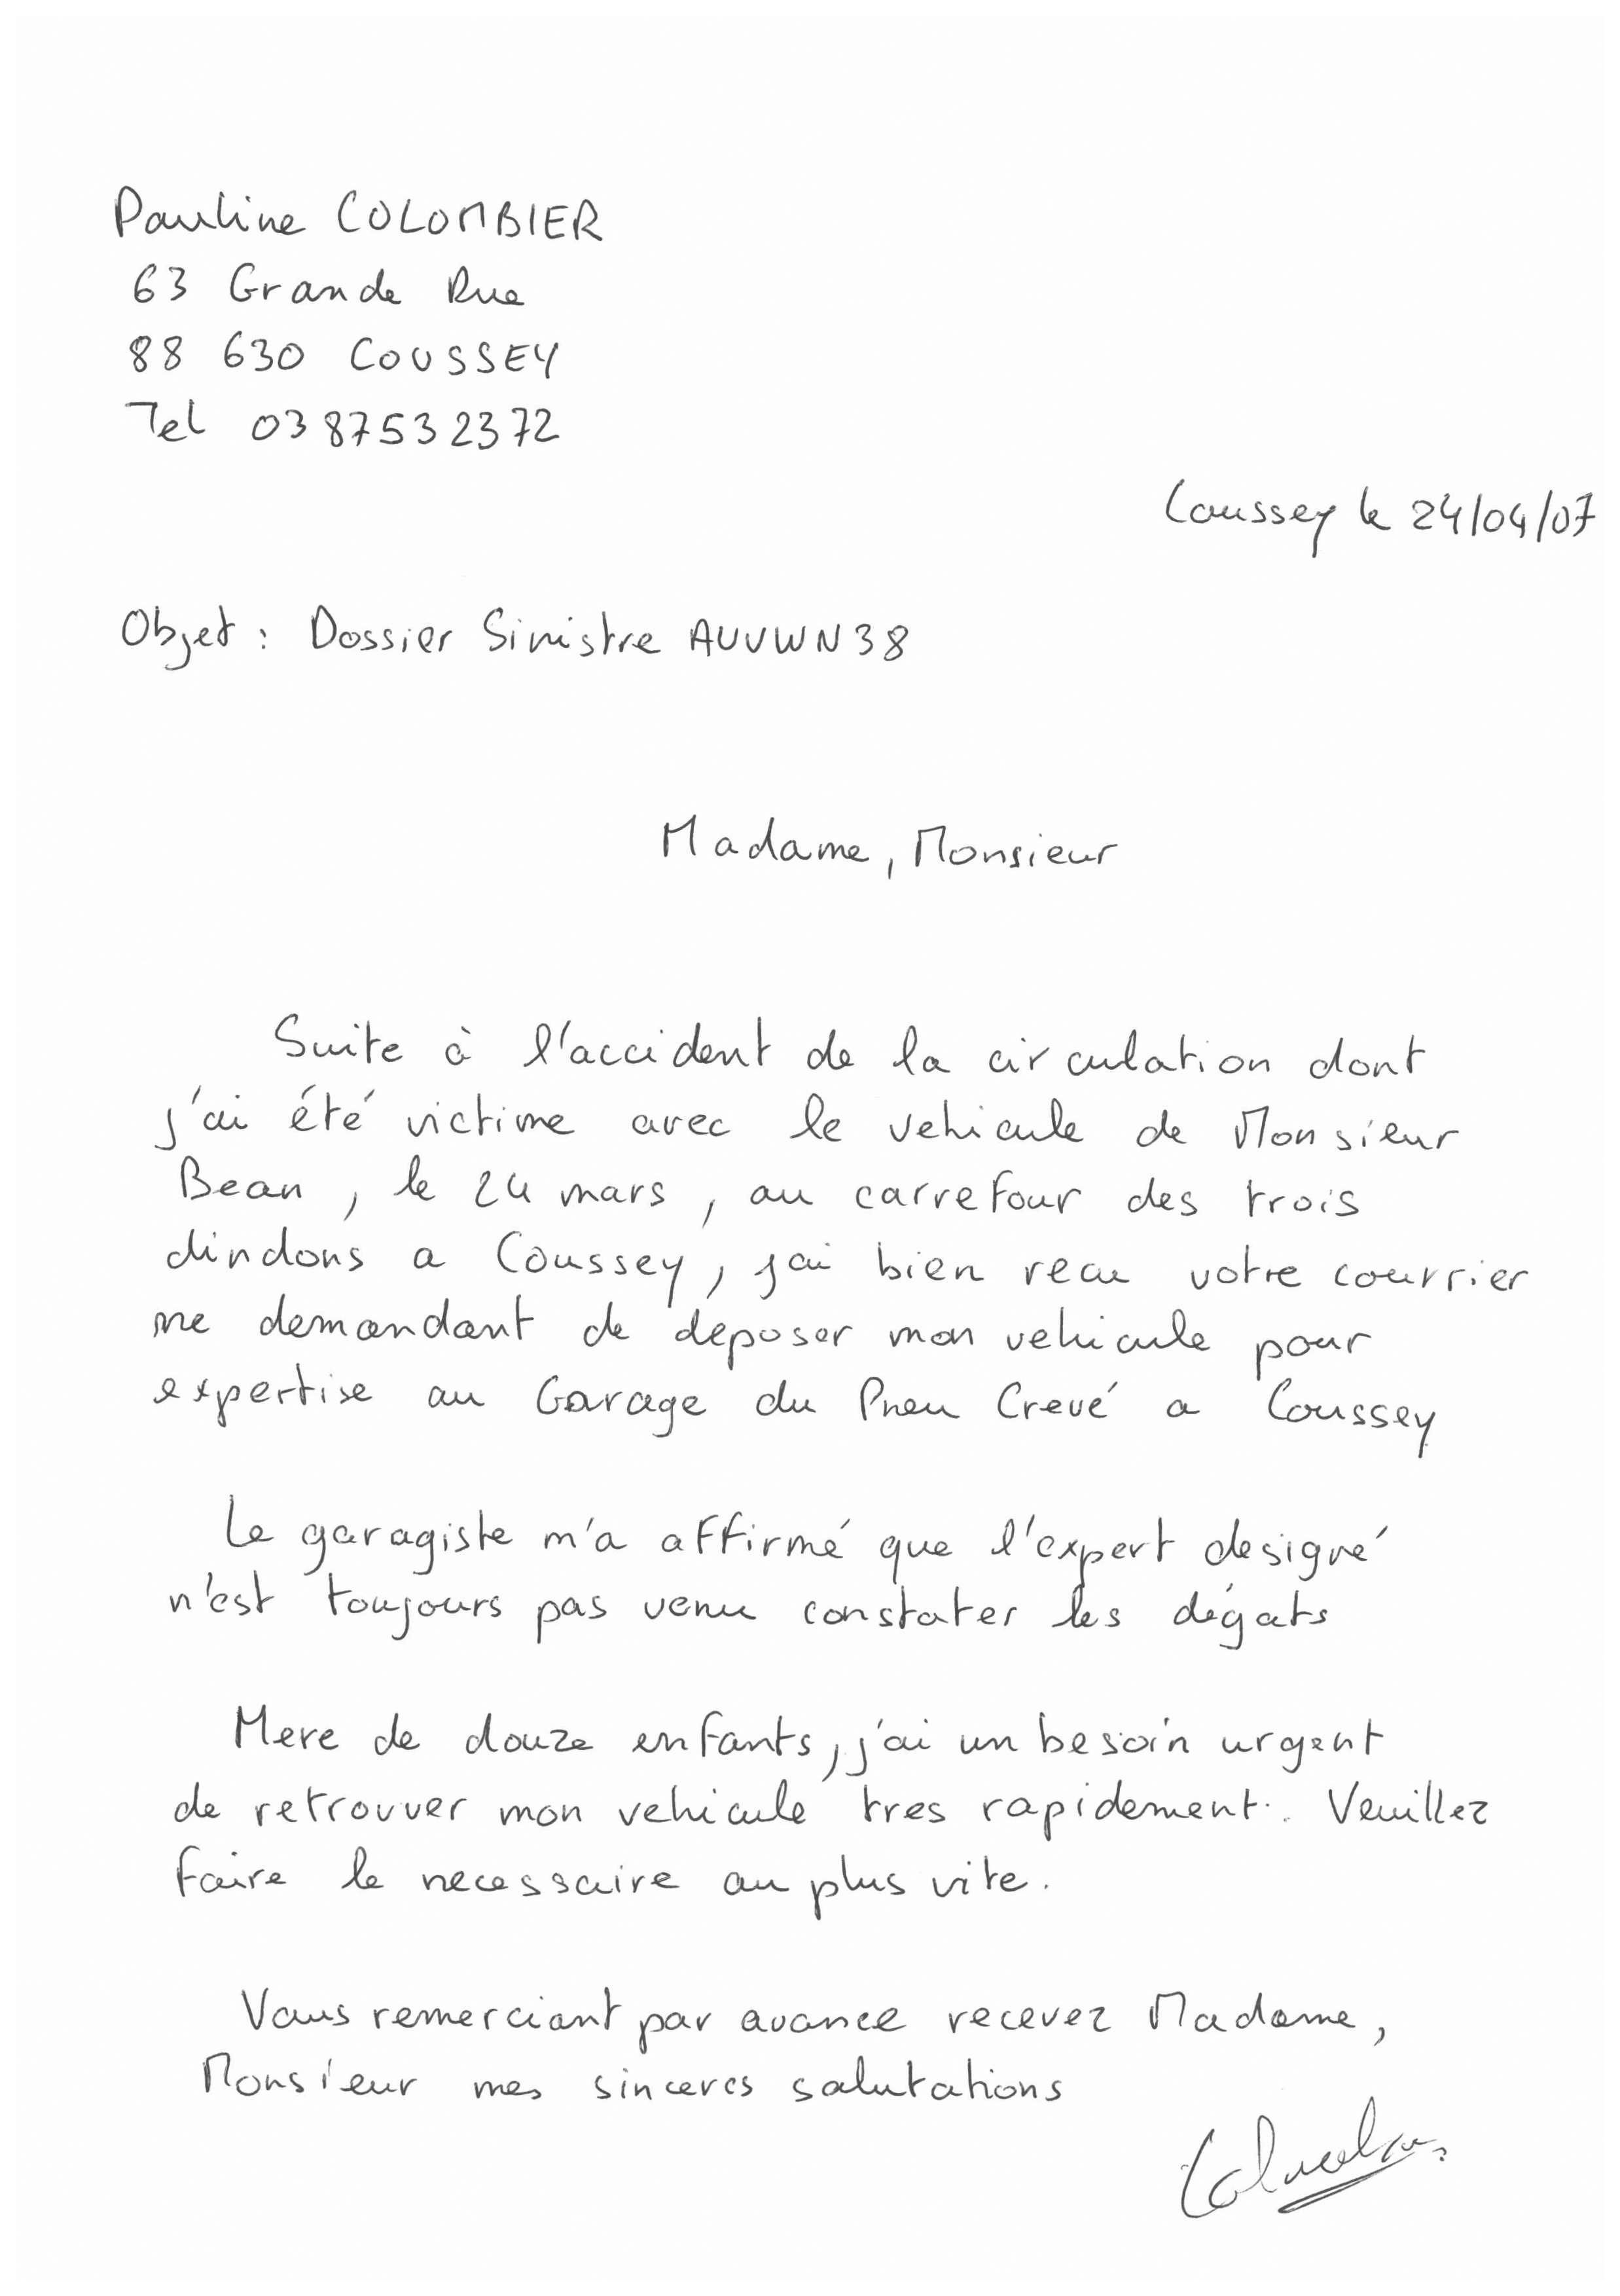 Pauline COLOMBIER
63 Grande Rue
88 630 COUSSEY
Tel 03 87 53 23 72
Coussey le 24/04/07
Objet : Dossier Sinistre AUVWN38
Madame, Monsieur
Suite à l'accident de la circulation dont
j'ai été victime avec le vehicule de Monsieur
Bean, le 24 mars, au carrefour des trois
dindons a Coussey, j'ai bien recu votre courrier
me demandant de deposer mon vehicule pour
expertise au Garage du Pneu Crevé a Coussey
Le garagiste m'a affirmé que l'expert designé
n'est toujours pas venu constater les dégats
Mere de douze enfants, j'ai un besoin urgent
de retrouver mon vehicule tres rapidement. Veuillez
faire le necessaire au plus vite.
Vous remerciant par avance recevez Madame,
Monsieur mes sinceres salutations